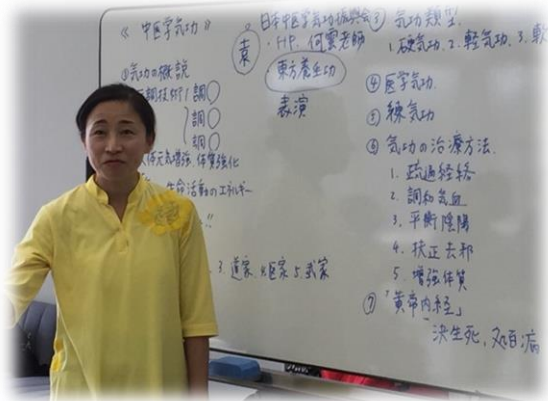 《中医学气功》
①气功の概説
調技術) 1 調○
調○
調○
体元气増強 体質強化
生命活動のエネルギー
!!
3. 道家 4. 医家 5. 武家
日本中医学气功
・HP. 何雲老師
袁
・東方養生功
表演
③ 气功類型
1. 硬気功. 2. 軽気功. 3. 軟
④ 医学气功.
⑤ 練気功
⑥ 気功の治療方法.
1. 疏通経絡
2. 調和気血
3. 平衡陰陽
4. 扶正去邪
5. 増強体質
⑦ 「黄帝内経」
決生死、処百病